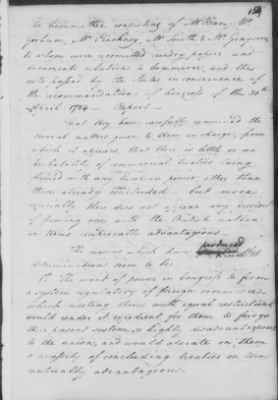 The committee consisting of Mr Kean, Mr
Gorham, Mr Pinckney, Mr Smith & Mr Grayson
to whom were recommitted sundry papers and
documents relative to commerce, and the
acts passed by the States in consequence of
the recommendation of Congress of the 30th
April 1784 — Report —
That they have carefully examined the
several matters given to them in charge, from
which it appears, that there is little or no
probability of commercial treaties being
formed with any foreign power, other than
those already concluded — but more
especially there does not appear any prospect
of forming ones with the British nation
on terms reciprocally advantageous.
The reasons which have produced
determination seem to be
1st The want of power in Congress to form
a system regulating foreign commerce
which meeting theirs with equal restrictions
would render it expedient for them to forego
their present system, so highly disadvantageous
to the union, and would operate on them
a necessity of concluding treaties on terms
mutually advantageous.